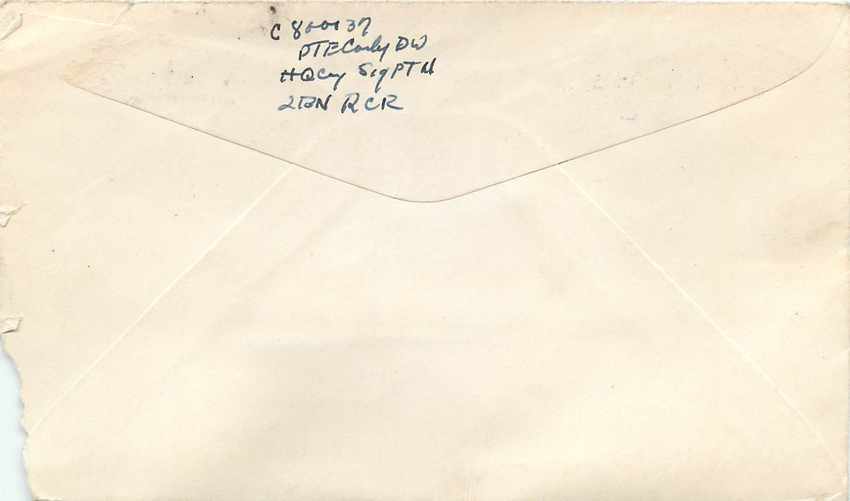 C 800137
PTE Conly DW
HQ Coy Sig PTN
2BN RCR